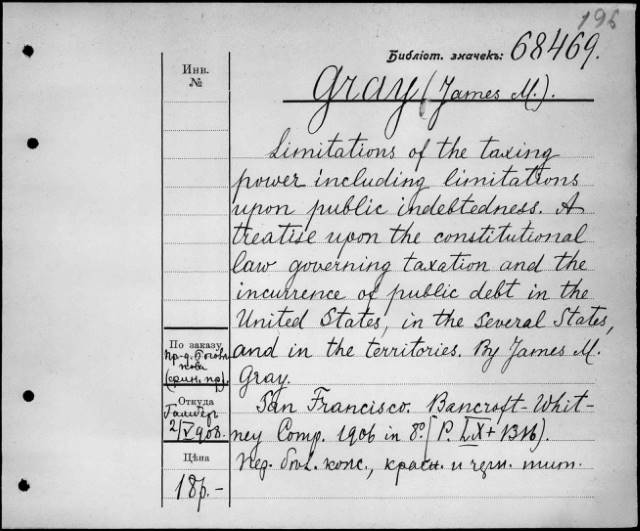 196
Библіот. значекъ: 68469.
Инв.
№
Gray (James M.).
Limitations of the taxing
power including limitations
upon public indebtedness. A
treatise upon the constitutional
law governing taxation and the
incurrence of public debt in the
United States, in the several States,
and in the territories. By James M.
Gray.
San Francisco. Bancroft-Whit-
ney Comp. 1906 in 8º. (P. LX + 1316).
пер. конс., красн. и черн. тит.
По заказу
(фин. пр).
Откуда
2/V 908.
Цѣна
18р.-